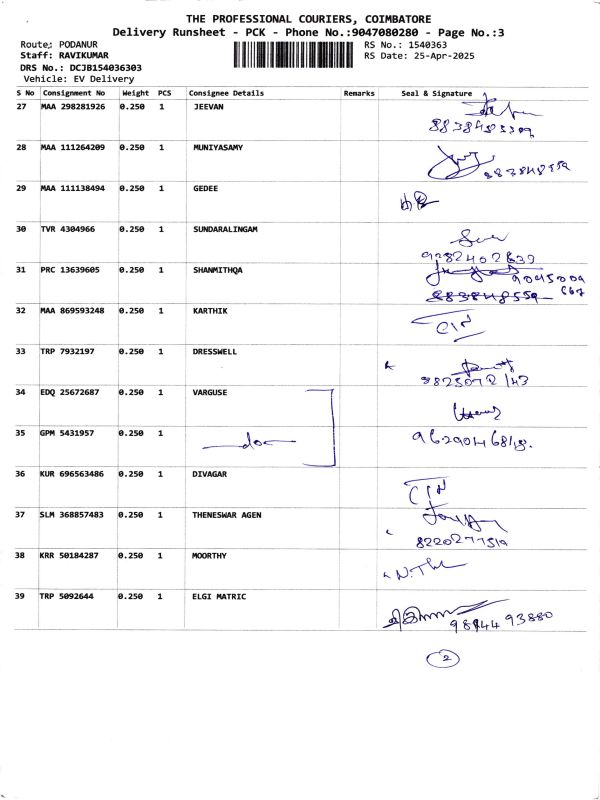 THE PROFESSIONAL COURIERS, COIMBATORE
Delivery Runsheet - PCK - Phone No.:9047080280 - Page No.:3
Route: PODANUR
RS No.: 1540363
Staff: RAVIKUMAR
RS Date: 25-Apr-2025
DRS No.: DCJB154036303
Vehicle: EV Delivery
S No Consignment No Weight PCS Consignee Details Remarks Seal & Signature
27 MAA 298281926 0.250 1 JEEVAN
28 MAA 111264209 0.250 1 MUNIYASAMY
29 MAA 111138494 0.250 1 GEDEE
30 TVR 4304966 0.250 1 SUNDARALINGAM
9282402639
31 PRC 13639605 0.250 1 SHANMITHQA
32 MAA 869593248 0.250 1 KARTHIK
33 TRP 7932197 0.250 1 DRESSWELL
34 EDQ 25672687 0.250 1 VARGUSE
35 GPM 5431957 0.250 1 -do-
36 KUR 696563486 0.250 1 DIVAGAR
37 SLM 368857483 0.250 1 THENESWAR AGEN
38 KRR 50184287 0.250 1 MOORTHY
39 TRP 5092644 0.250 1 ELGI MATRIC
2